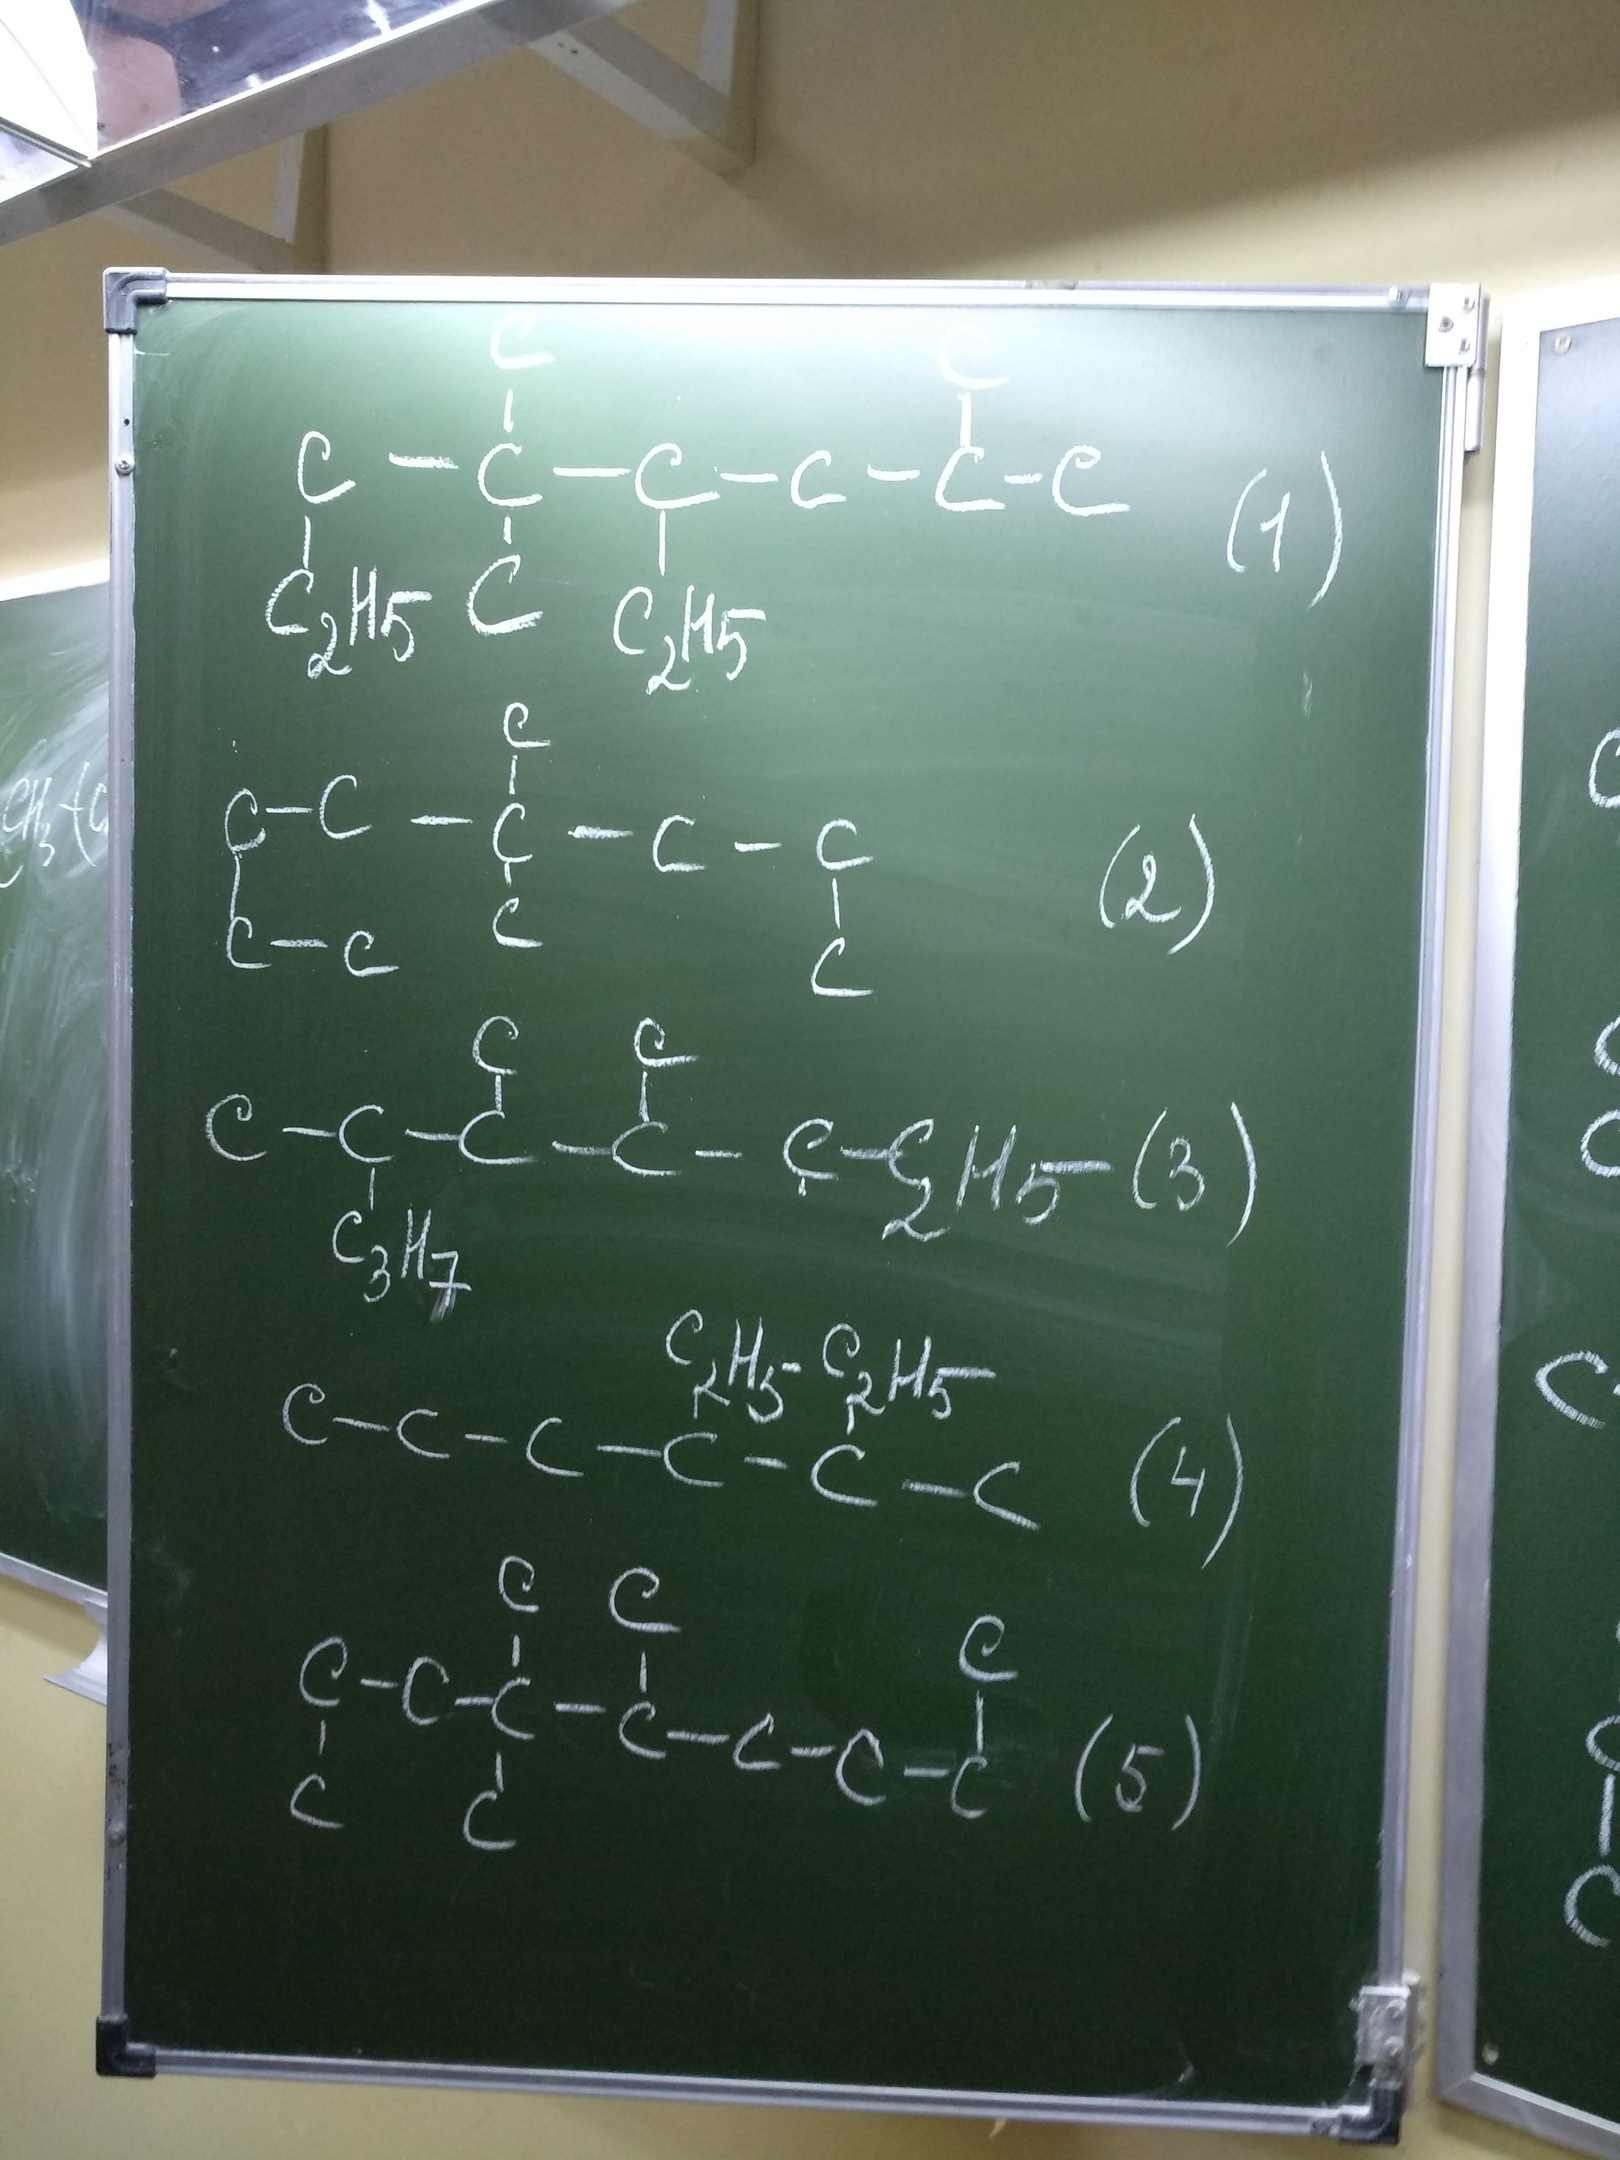 C C
C - C - C - C - C - C (1)
C2H5 C C2H5
C
C - C - C - C - C (2)
C - C C C
C C
C - C - C - C - C - C2H5 - (3)
C3H7
C2H5 - C2H5 -
C - C - C - C - C - C (4)
C C C
C - C - C - C - C - C - C (5)
C C
CH3 - (
C
C
C
C
C
C